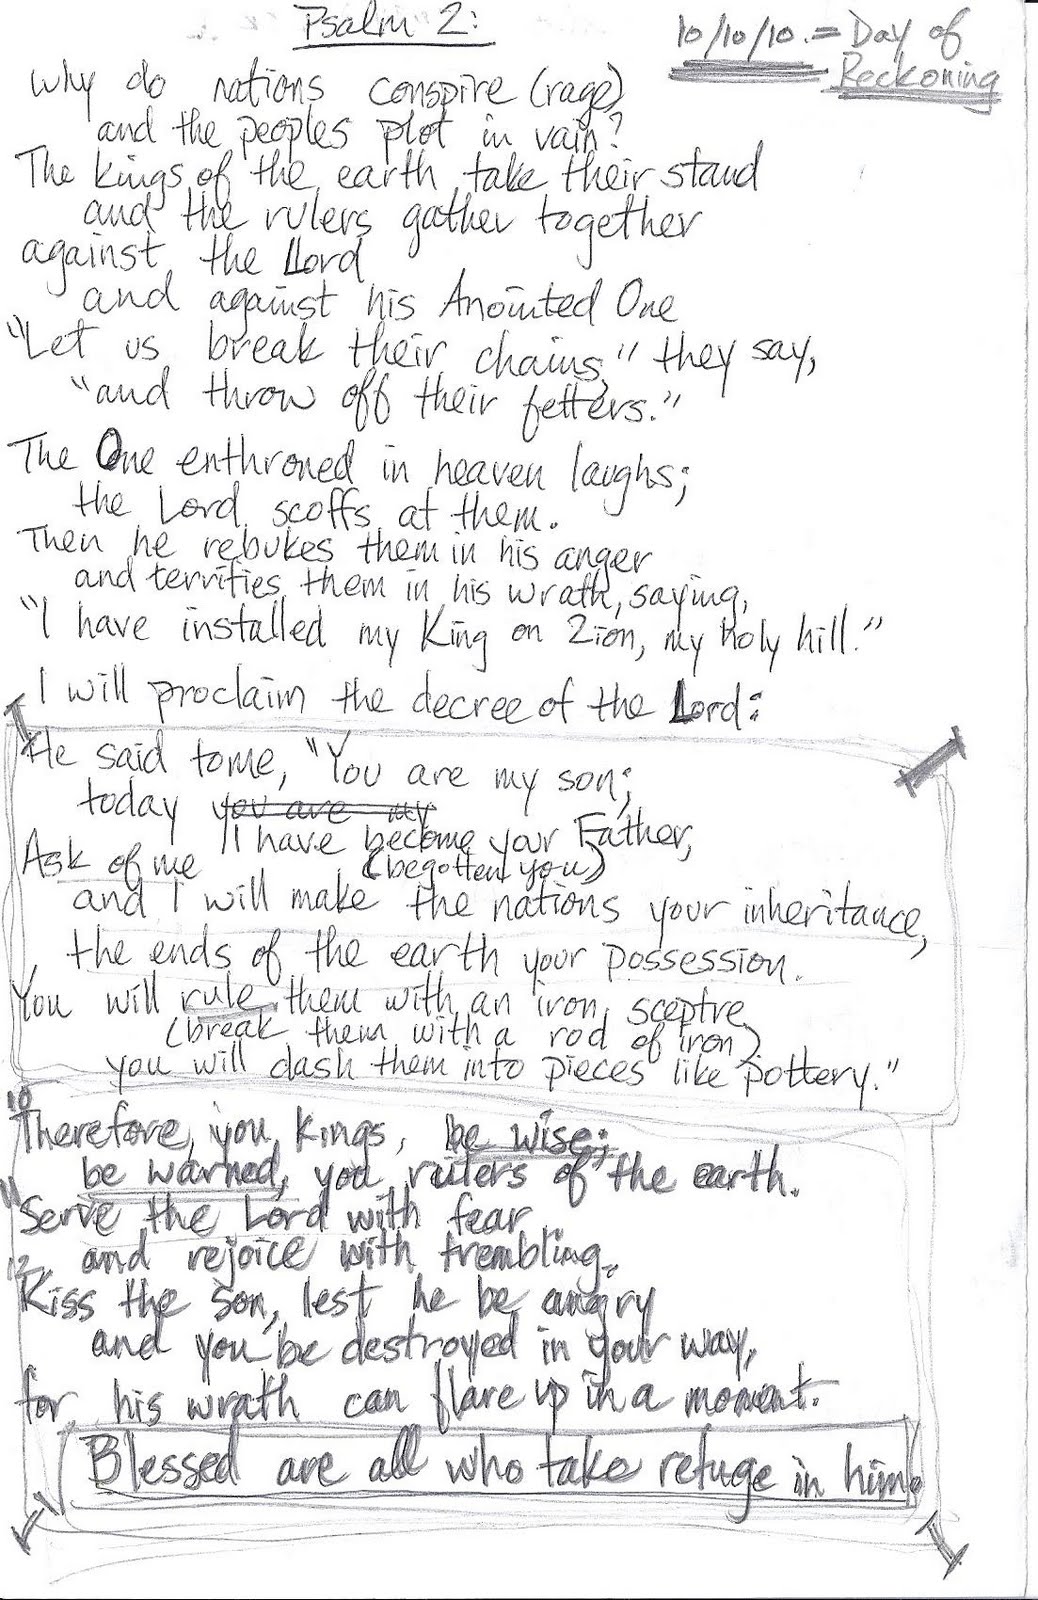 Psalm 2:
10/10/10. = Day of
Reckoning
Why do nations conspire (rage)
and the peoples plot in vain?
The kings of the earth take their stand
and the rulers gather together
against the Lord
and against his Anointed One
"Let us break their chains," they say,
"and throw off their fetters."
The One enthroned in heaven laughs;
the Lord scoffs at them.
Then he rebukes them in his anger
and terrifies them in his wrath, saying,
"I have installed my King on Zion, my holy hill."
I will proclaim the decree of the Lord:
He said to me, "You are my son;
today you are my
I have become your Father,
(begotten you)
Ask of me
and I will make the nations your inheritance,
the ends of the earth your possession.
You will rule them with an iron sceptre
(break them with a rod of iron)
you will dash them into pieces like pottery."
10 Therefore, you kings, be wise;
be warned, you rulers of the earth.
11 Serve the Lord with fear
and rejoice with trembling.
12 Kiss the son, lest he be angry
and you be destroyed in your way,
for his wrath can flare up in a moment.
Blessed are all who take refuge in him.